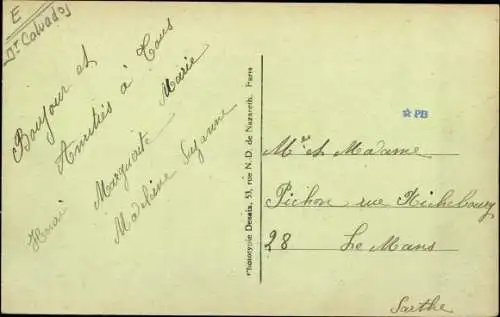 E
Dt Calvados
Bonjour et
Amitiés à Tous
Marguerite Marie
Henri
Madeleine Suzanne
Phototypie Desaix, 53, rue N.-D. de Nazareth, Paris
☆ PB
Mr et Madame
Pichon rue Richebourg
28 Le Mans
Sarthe